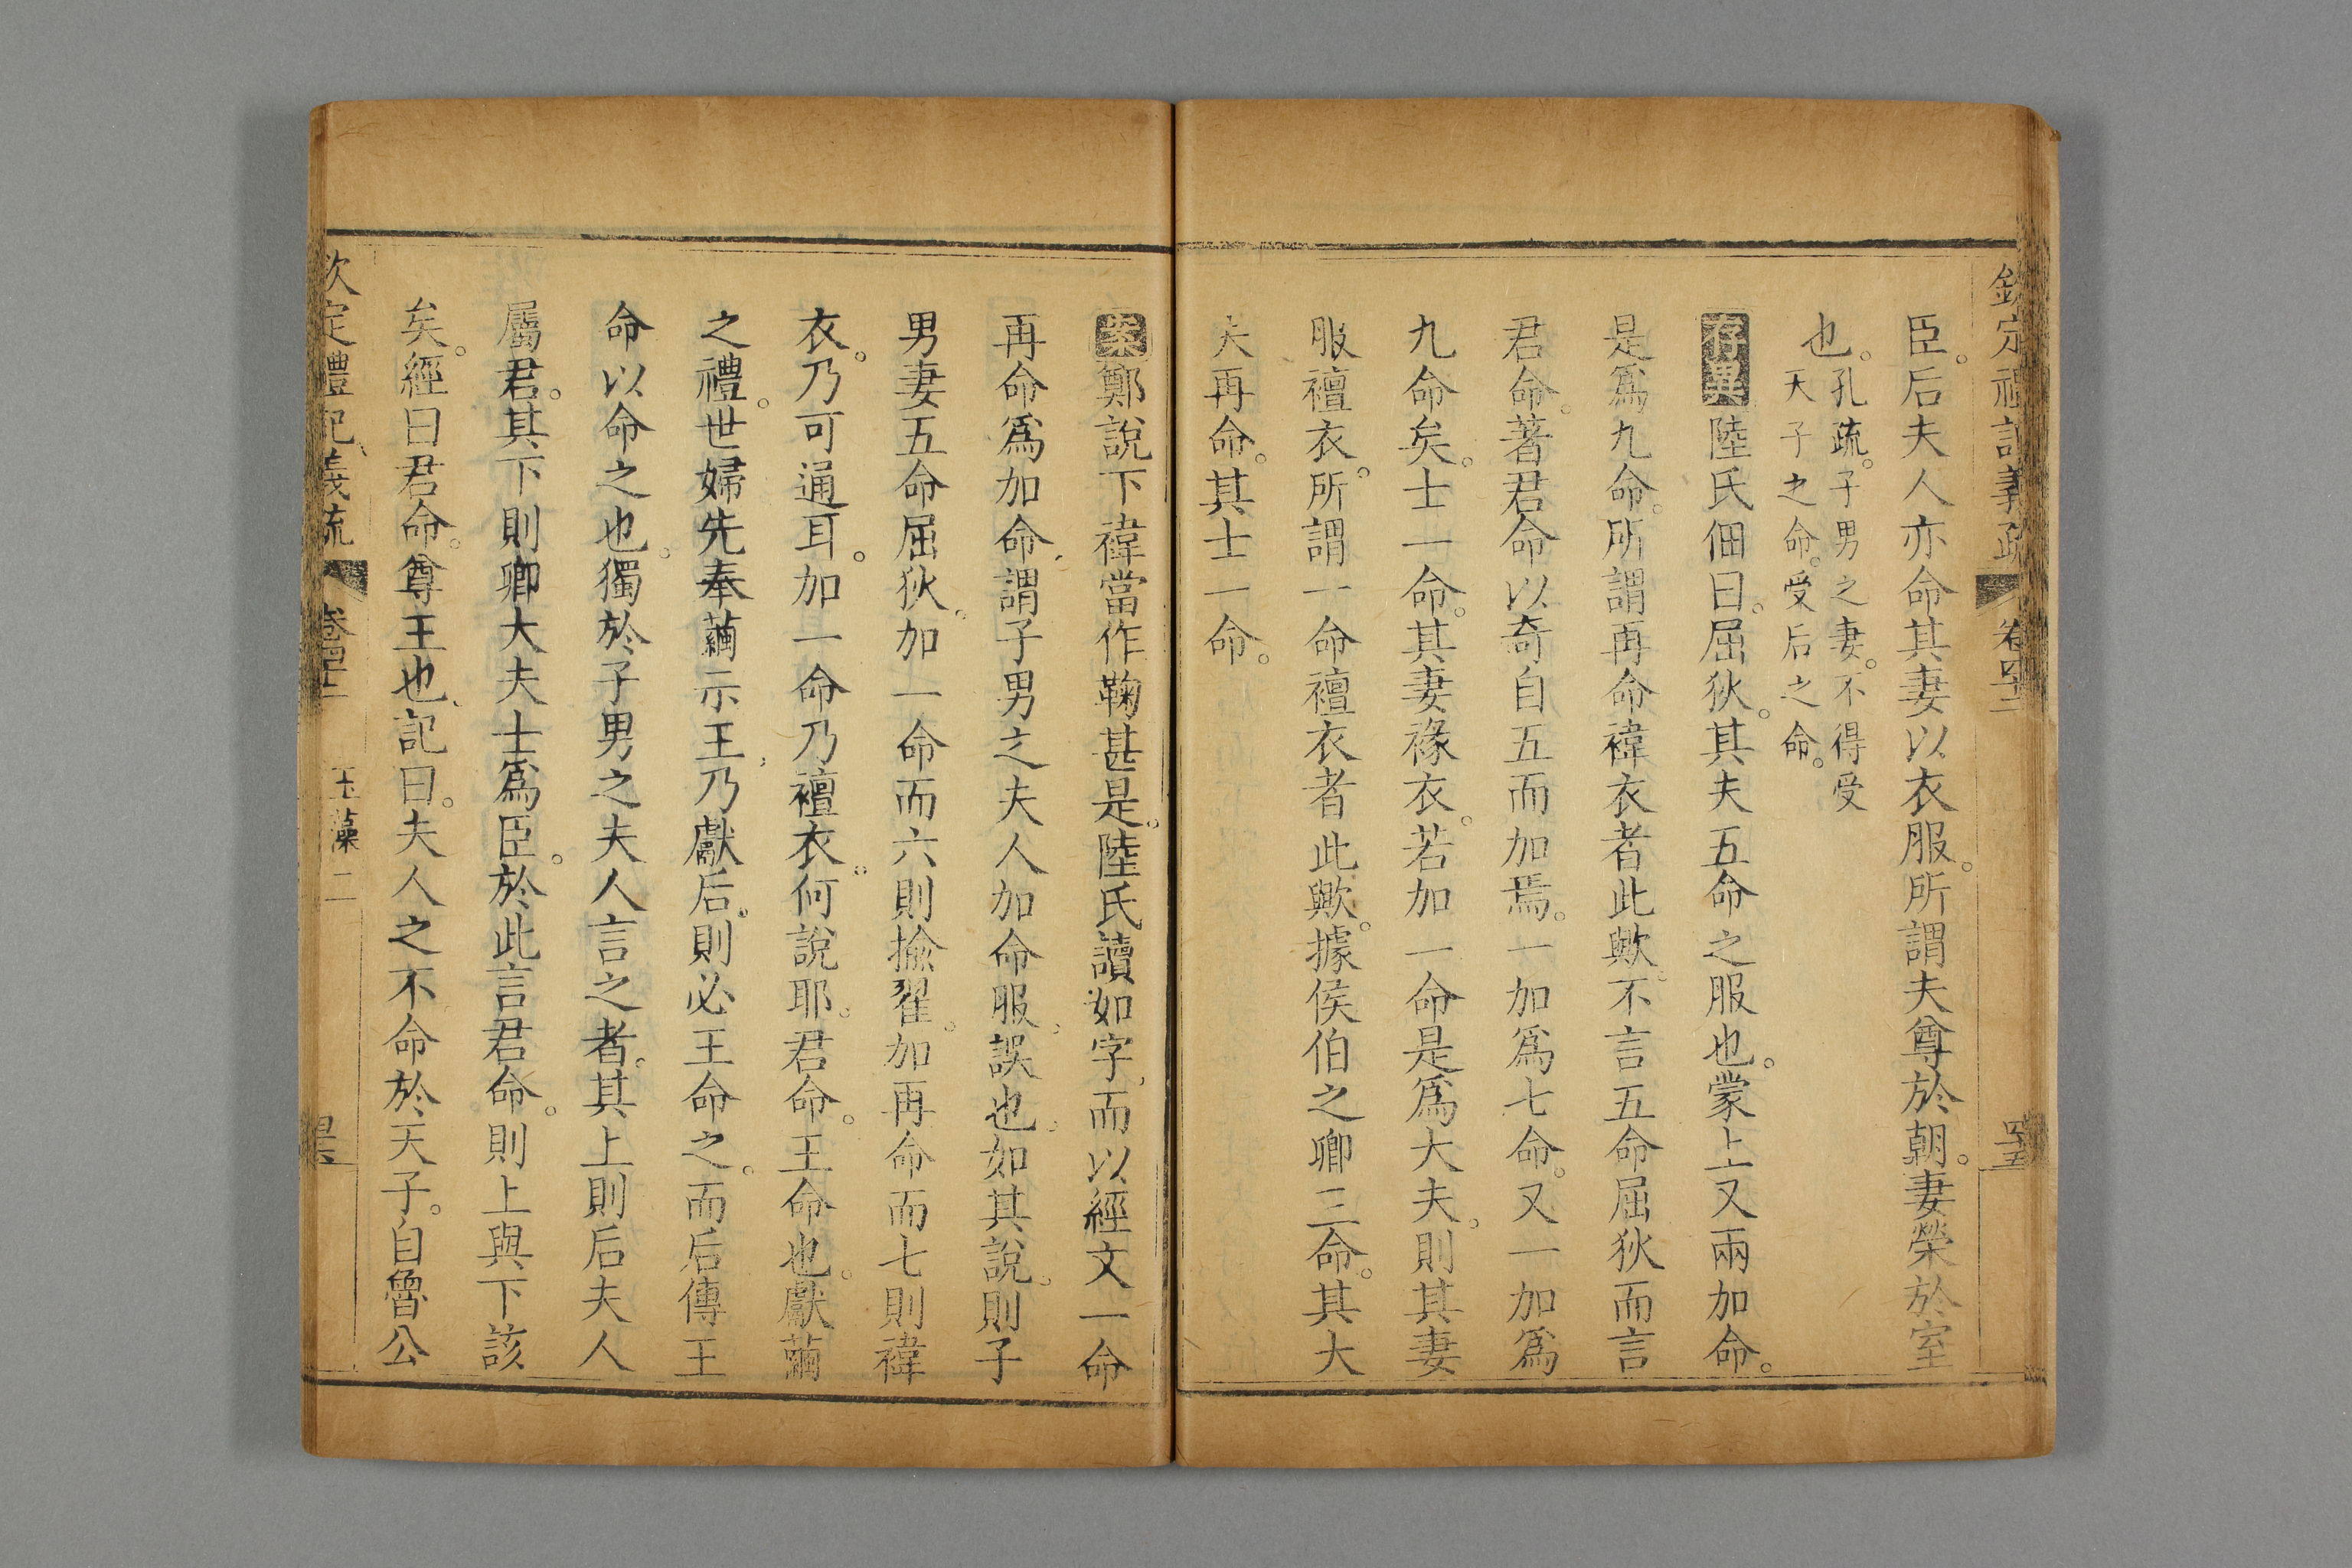 欽定禮記義疏 卷四十二 四十五
臣。后夫人亦命其妻以衣服。所謂夫尊於朝。妻榮於室
也。孔疏。子男之妻。不得受
天子之命。受后之命。
存異陸氏佃曰。屈狄。其夫五命之服也。蒙上又兩加命。
是爲九命。所謂再命褘衣者此歟。不言五命屈狄而言
君命。著君命以奇自五而加焉。一加爲七命。又一加爲
九命矣。士一命。其妻褖衣。若加一命是爲大夫。則其妻
服襢衣。所謂一命襢衣者此歟。據侯伯之卿三命。其大
夫再命。其士一命。
案鄭說下褘當作鞠甚是。陸氏讀如字。而以經文一命
再命爲加命。謂子男之夫人加命服。誤也。如其說。則子
男妻五命屈狄。加一命而六則揄翟。加再命而七則褘
衣。乃可通耳。加一命乃襢衣。何說耶。君命。王命也。獻繭
之禮。世婦先奉繭示王。乃獻后。則必王命之。而后傳王
命以命之也。獨於子男之夫人言之者。其上則后夫人
屬君。其下則卿大夫士爲臣。於此言君命。則上與下該
矣。經曰君命。尊王也。記曰。夫人之不命於天子。自魯公
欽定禮記義疏 卷四十二 玉藻二